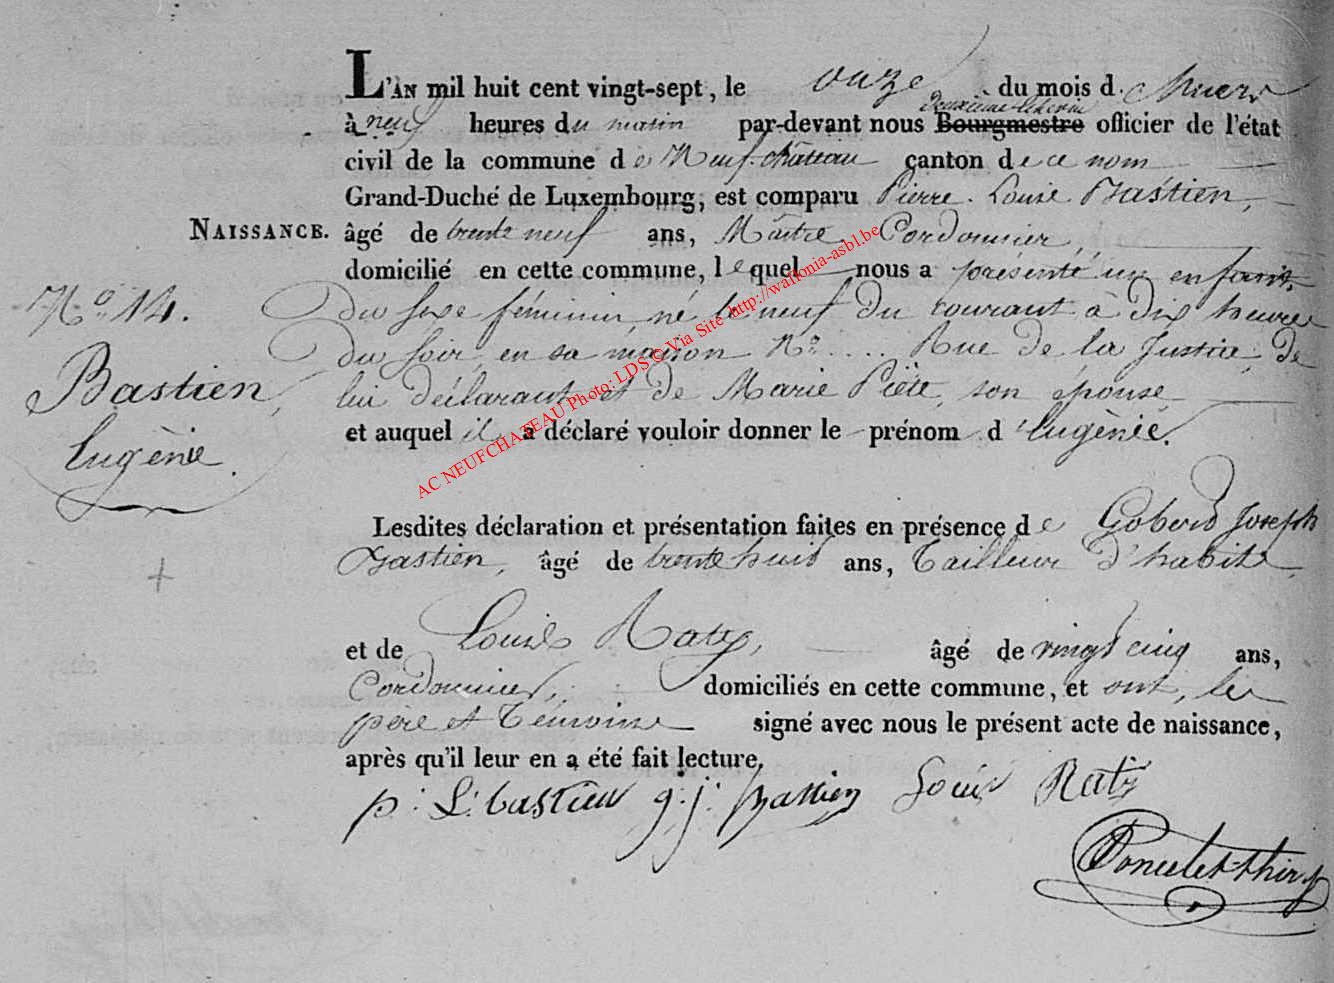 L'AN mil huit cent vingt-sept, le onze du mois de Mars
deuxième échevin
à neuf heures du matin par-devant nous Bourgmestre officier de l'état
civil de la commune de Neufchâteau canton de ce nom
Grand-Duché de Luxembourg, est comparu Pierre Louis Bastien,
NAISSANCE. âgé de trente neuf ans, Maître Cordonnier,
domicilié en cette commune, lequel nous a présenté un enfant
N.o 14. Du sexe féminin, né le neuf du courant à dix heures
du soir, en sa maison No .... Rue de la Justice, de
Bastien, lui déclarant et de Marie Piète, son épouse
et auquel il a déclaré vouloir donner le prénom d'Eugènie.
Eugènie.
Lesdites déclaration et présentation faites en présence de Goberd Joseph
Bastien, âgé de trente huit ans, Tailleur d'habits,
et de Louis Raty, âgé de vingt cinq ans,
Cordonnier, domiciliés en cette commune, et ont, les
père et témoins signé avec nous le présent acte de naissance,
après qu'il leur en a été fait lecture,
p: L: bastien g: j: Bastien Louis Ratÿ
Poncelet-thiry
AC NEUFCHATEAU Photo: LDS © Via Site http://wallonia-asbl.be